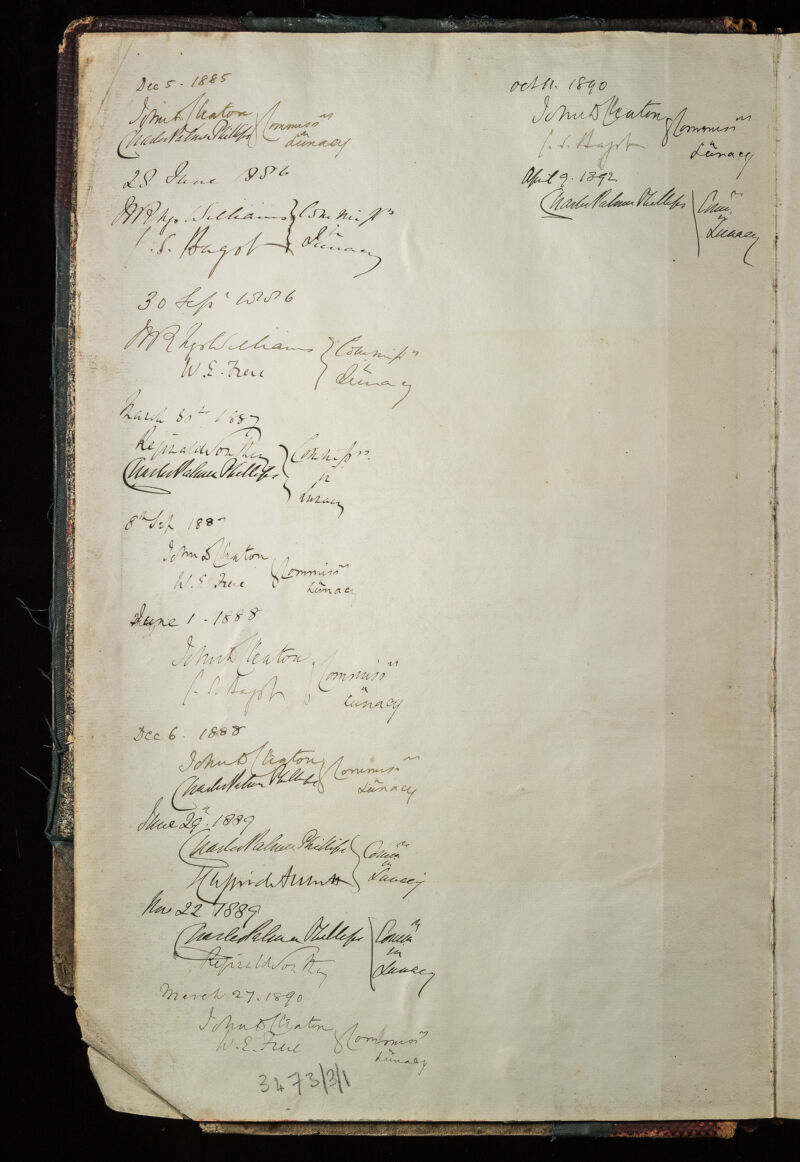 Dec 5 - 1885
John D Cleaton
Charles Palmer Phillips
Commissrs
in
Lunacy
28 June 1886
W Rhys Williams
C. S. Bagot
Commissrs
in
Lunacy
30 Sepr 1886
W Rhys Williams
W. E. Frere
Commissrs
in
Lunacy
March 30th 1887
Reginald Southey
Charles Palmer Phillips
Commissrs.
in
Lunacy
8th Sep 1887
John D Cleaton
W. E. Frere
Commissrs
in
Lunacy
June 1 - 1888
John D Cleaton
C. S. Bagot
Commissrs
in
Lunacy
Dec 6. 1888
John D Cleaton
Charles Palmer Phillips
Commissrs
in
Lunacy
June 29. 1889
Charles Palmer Phillips
Comrs
in
Lunacy
Nov 22 1889
Charles Palmer Phillips
Reginald Southey
Comrs
in
Lunacy
March 27. 1890
John D Cleaton
W. E. Frere
Commissrs
in
Lunacy
3473/3/1
Oct 11. 1890
John D Cleaton
C. S. Bagot
Commissrs
in
Lunacy
April 9. 1892
Charles Palmer Phillips
Comrs.
in
Lunacy